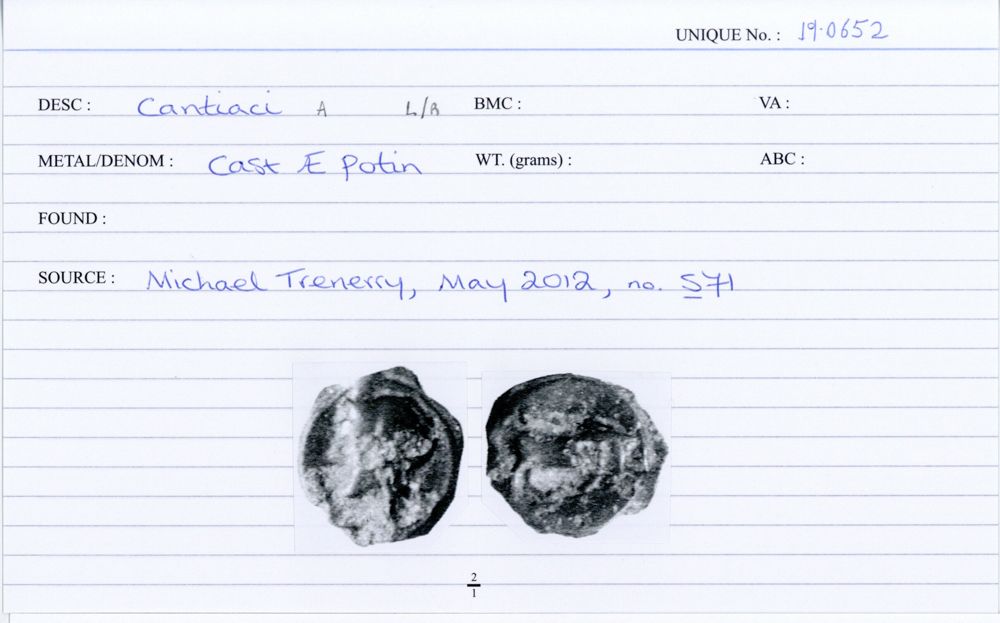 UNIQUE No. : 19.0652
DESC : Cantiaci A L/B BMC : VA :
METAL/DENOM : Cast Æ Potin WT. (grams) : ABC :
FOUND :
SOURCE : Michael Trenerry, May 2012, no. S71
2
1